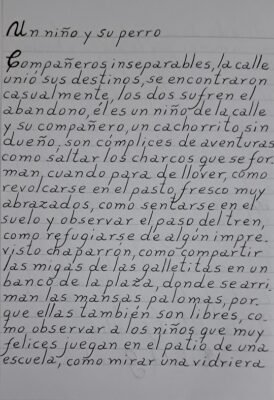 Un niño y su perro
Compañeros inseparables, la calle
unió sus destinos, se encontraron
casualmente, los dos sufren el
abandono, él es un niño de la calle
y su compañero, un cachorrito, sin
dueño, son cómplices de aventuras
como saltar los charcos que se for
man, cuando para de llover, cómo
revolcarse en el pasto, fresco muy
abrazados, como sentarse en el
suelo y observar el paso del tren,
como refugiarse de algún impre-
visto chaparrón, como compartir
las migas de las galletitas en un
banco de la plaza, donde se arri-
man las mansas palomas, por-
que ellas también son libres, co-
mo, observar a los niños que muy
felices juegan en el patio de una
escuela, como mirar una vidriera